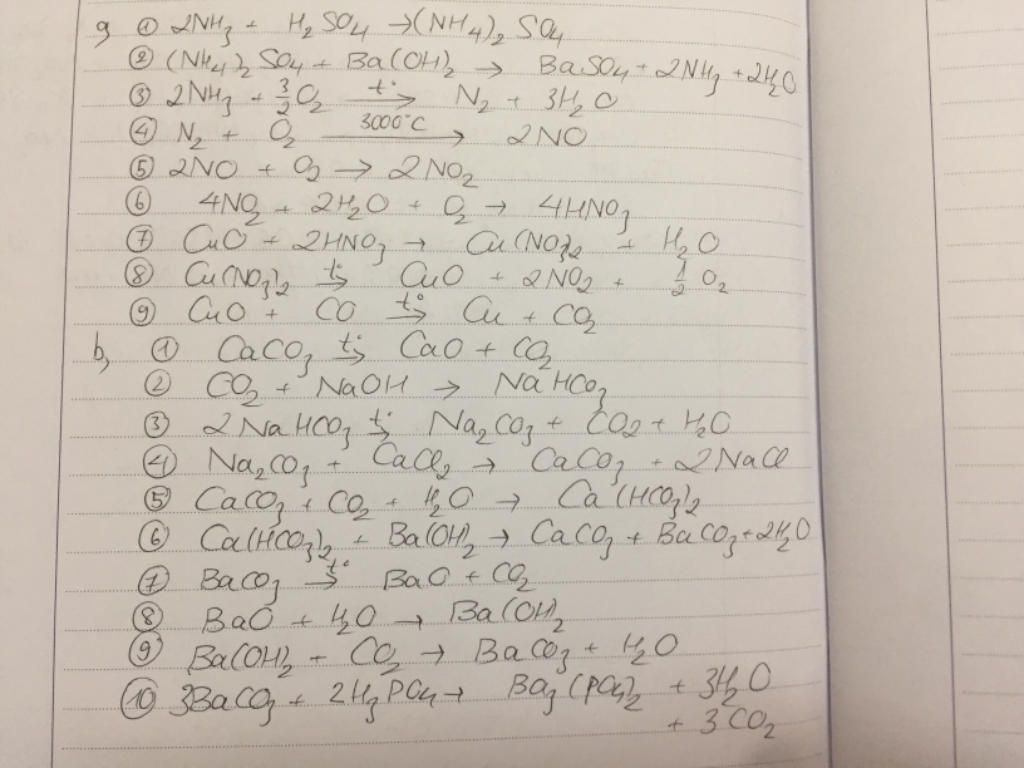 a, ① 2NH₃ + H₂SO₄ → (NH₄)₂SO₄
② (NH₄)₂SO₄ + Ba(OH)₂ → BaSO₄ + 2NH₃ + 2H₂O
③ 2NH₃ + 3/2 O₂ –t°→ N₂ + 3H₂O
④ N₂ + O₂ –3000°C→ 2NO
⑤ 2NO + O₂ → 2NO₂
⑥ 4NO₂ + 2H₂O + O₂ → 4HNO₃
⑦ CuO + 2HNO₃ → Cu(NO₃)₂ + H₂O
⑧ Cu(NO₃)₂ –t°→ CuO + 2NO₂ + 1/2 O₂
⑨ CuO + CO –t°→ Cu + CO₂
b, ① CaCO₃ –t°→ CaO + CO₂
② CO₂ + NaOH → NaHCO₃
③ 2NaHCO₃ –t°→ Na₂CO₃ + CO₂ + H₂O
④ Na₂CO₃ + CaCl₂ → CaCO₃ + 2NaCl
⑤ CaCO₃ + CO₂ + H₂O → Ca(HCO₃)₂
⑥ Ca(HCO₃)₂ + Ba(OH)₂ → CaCO₃ + BaCO₃ + 2H₂O
⑦ BaCO₃ –t°→ BaO + CO₂
⑧ BaO + H₂O → Ba(OH)₂
⑨ Ba(OH)₂ + CO₂ → BaCO₃ + H₂O
⑩ 3BaCO₃ + 2H₃PO₄ → Ba₃(PO₄)₂ + 3H₂O
+ 3CO₂